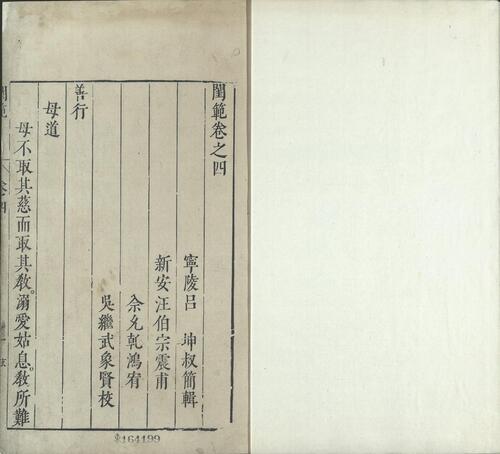 閨範卷之四
寧陵呂 坤叔簡輯
新安汪伯宗震甫
余允乾鴻宥
吳繼武象賢校
善行
母道
母不取其慈而取其敎。溺愛姑息。敎所難
閨範
卷四
164199